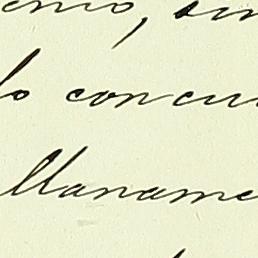 enio, sin
lo concur
llaname